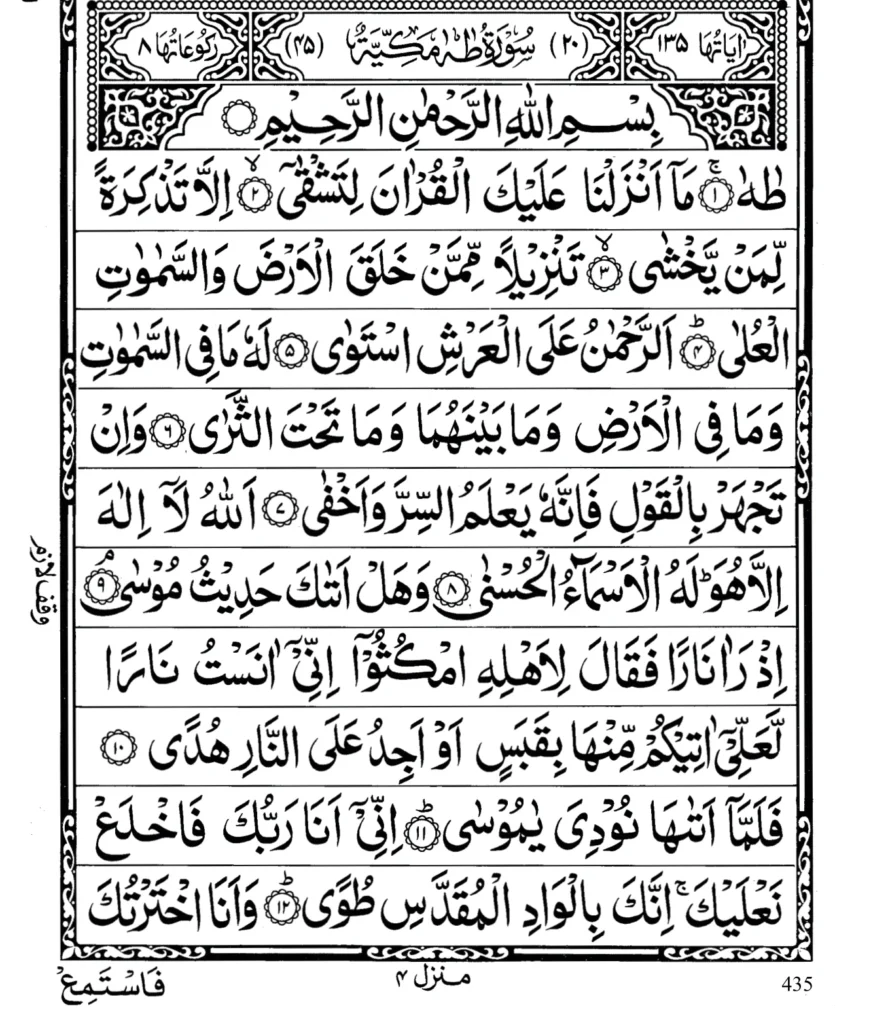 اٰيَاتُهَا ١٣٥ (٢٠) سُوْرَةُ طٰهٰ مَكِّيَّةٌ (٤٥) رُكُوْعَاتُهَا ٨
بِسْمِ اللّٰهِ الرَّحْمٰنِ الرَّحِيْمِ
طٰهٰ ۚ‏﴿١﴾ مَاۤ اَنْزَلْنَا عَلَيْكَ الْقُرْاٰنَ لِتَشْقٰۤى ۙ‏﴿٢﴾ اِلَّا تَذْكِرَةً
لِّمَنْ يَّخْشٰى ۙ‏﴿٣﴾ تَنْزِيْلًا مِّمَّنْ خَلَقَ الْاَرْضَ وَالسَّمٰوٰتِ
الْعُلٰى ؕ‏﴿٤﴾ اَلرَّحْمٰنُ عَلَى الْعَرْشِ اسْتَوٰى ﴿٥﴾ لَهٗ مَا فِى السَّمٰوٰتِ
وَمَا فِى الْاَرْضِ وَمَا بَيْنَهُمَا وَمَا تَحْتَ الثَّرٰى ﴿٦﴾ وَاِنْ
تَجْهَرْ بِالْقَوْلِ فَاِنَّهٗ يَعْلَمُ السِّرَّ وَاَخْفٰى ﴿٧﴾ اَللّٰهُ لَاۤ اِلٰهَ
اِلَّا هُوَ ؕ لَهُ الْاَسْمَآءُ الْحُسْنٰى ﴿٨﴾ وَهَلْ اَتٰٮكَ حَدِيْثُ مُوْسٰى ۘ‏﴿٩﴾
وقف لازم
اِذْ رَاٰ نَارًا فَقَالَ لِاَهْلِهِ امْكُثُوْۤا اِنِّىْۤ اٰنَسْتُ نَارًا
لَّعَلِّىْۤ اٰتِيْكُمْ مِّنْهَا بِقَبَسٍ اَوْ اَجِدُ عَلَى النَّارِ هُدًى ﴿١٠﴾
فَلَمَّاۤ اَتٰٮهَا نُوْدِىَ يٰمُوْسٰى ؕ‏﴿١١﴾ اِنِّىْۤ اَنَا رَبُّكَ فَاخْلَعْ
نَعْلَيْكَ ۚ اِنَّكَ بِالْوَادِ الْمُقَدَّسِ طُوًى ؕ‏﴿١٢﴾ وَاَنَا اخْتَرْتُكَ
فَاسْتَمِعْ منزل ٤ 435